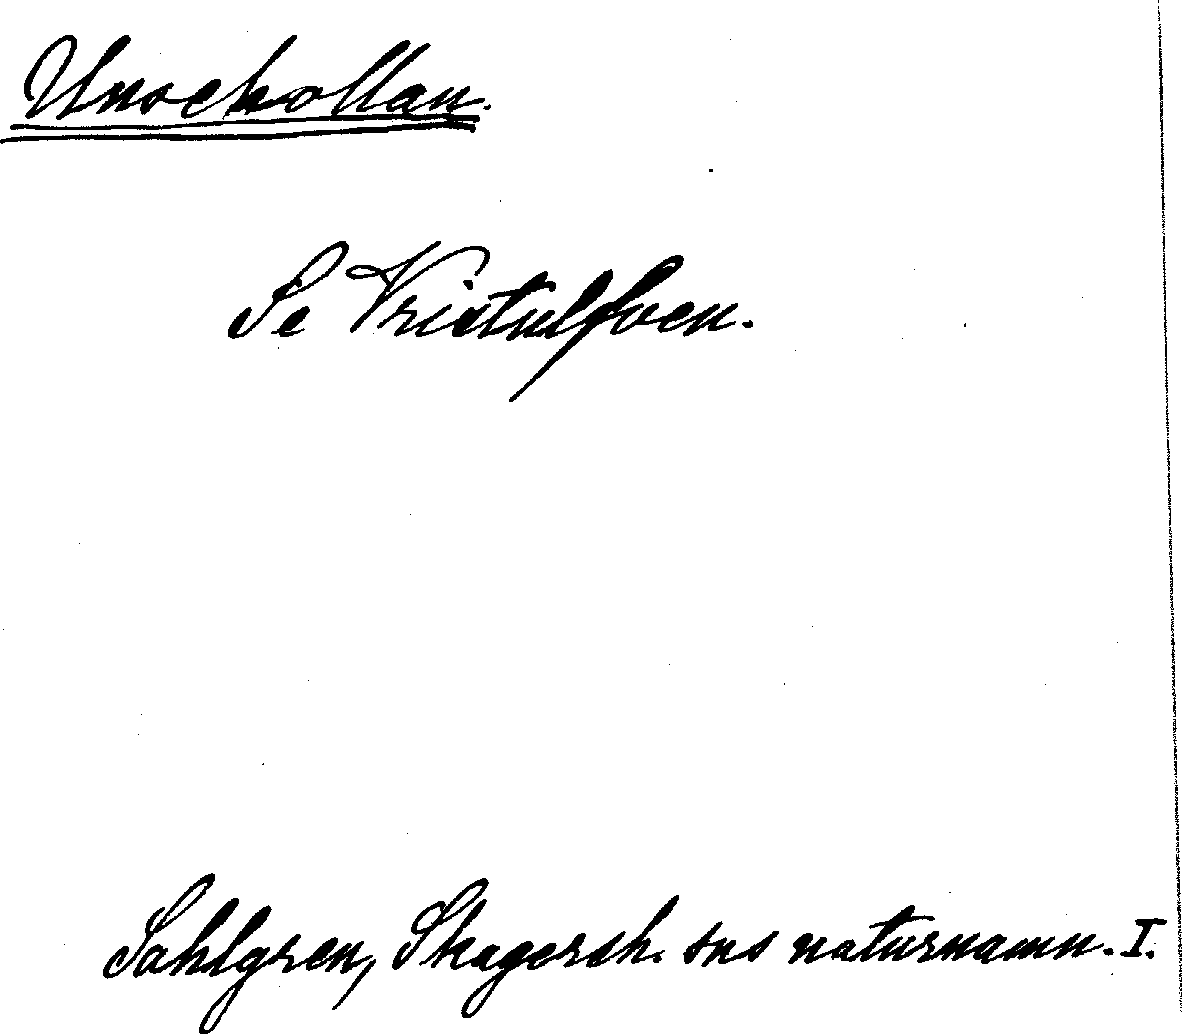 Unsekollan.
Se Vristulfven.
Sahlgren, Skagersh. sns naturnamn. I.